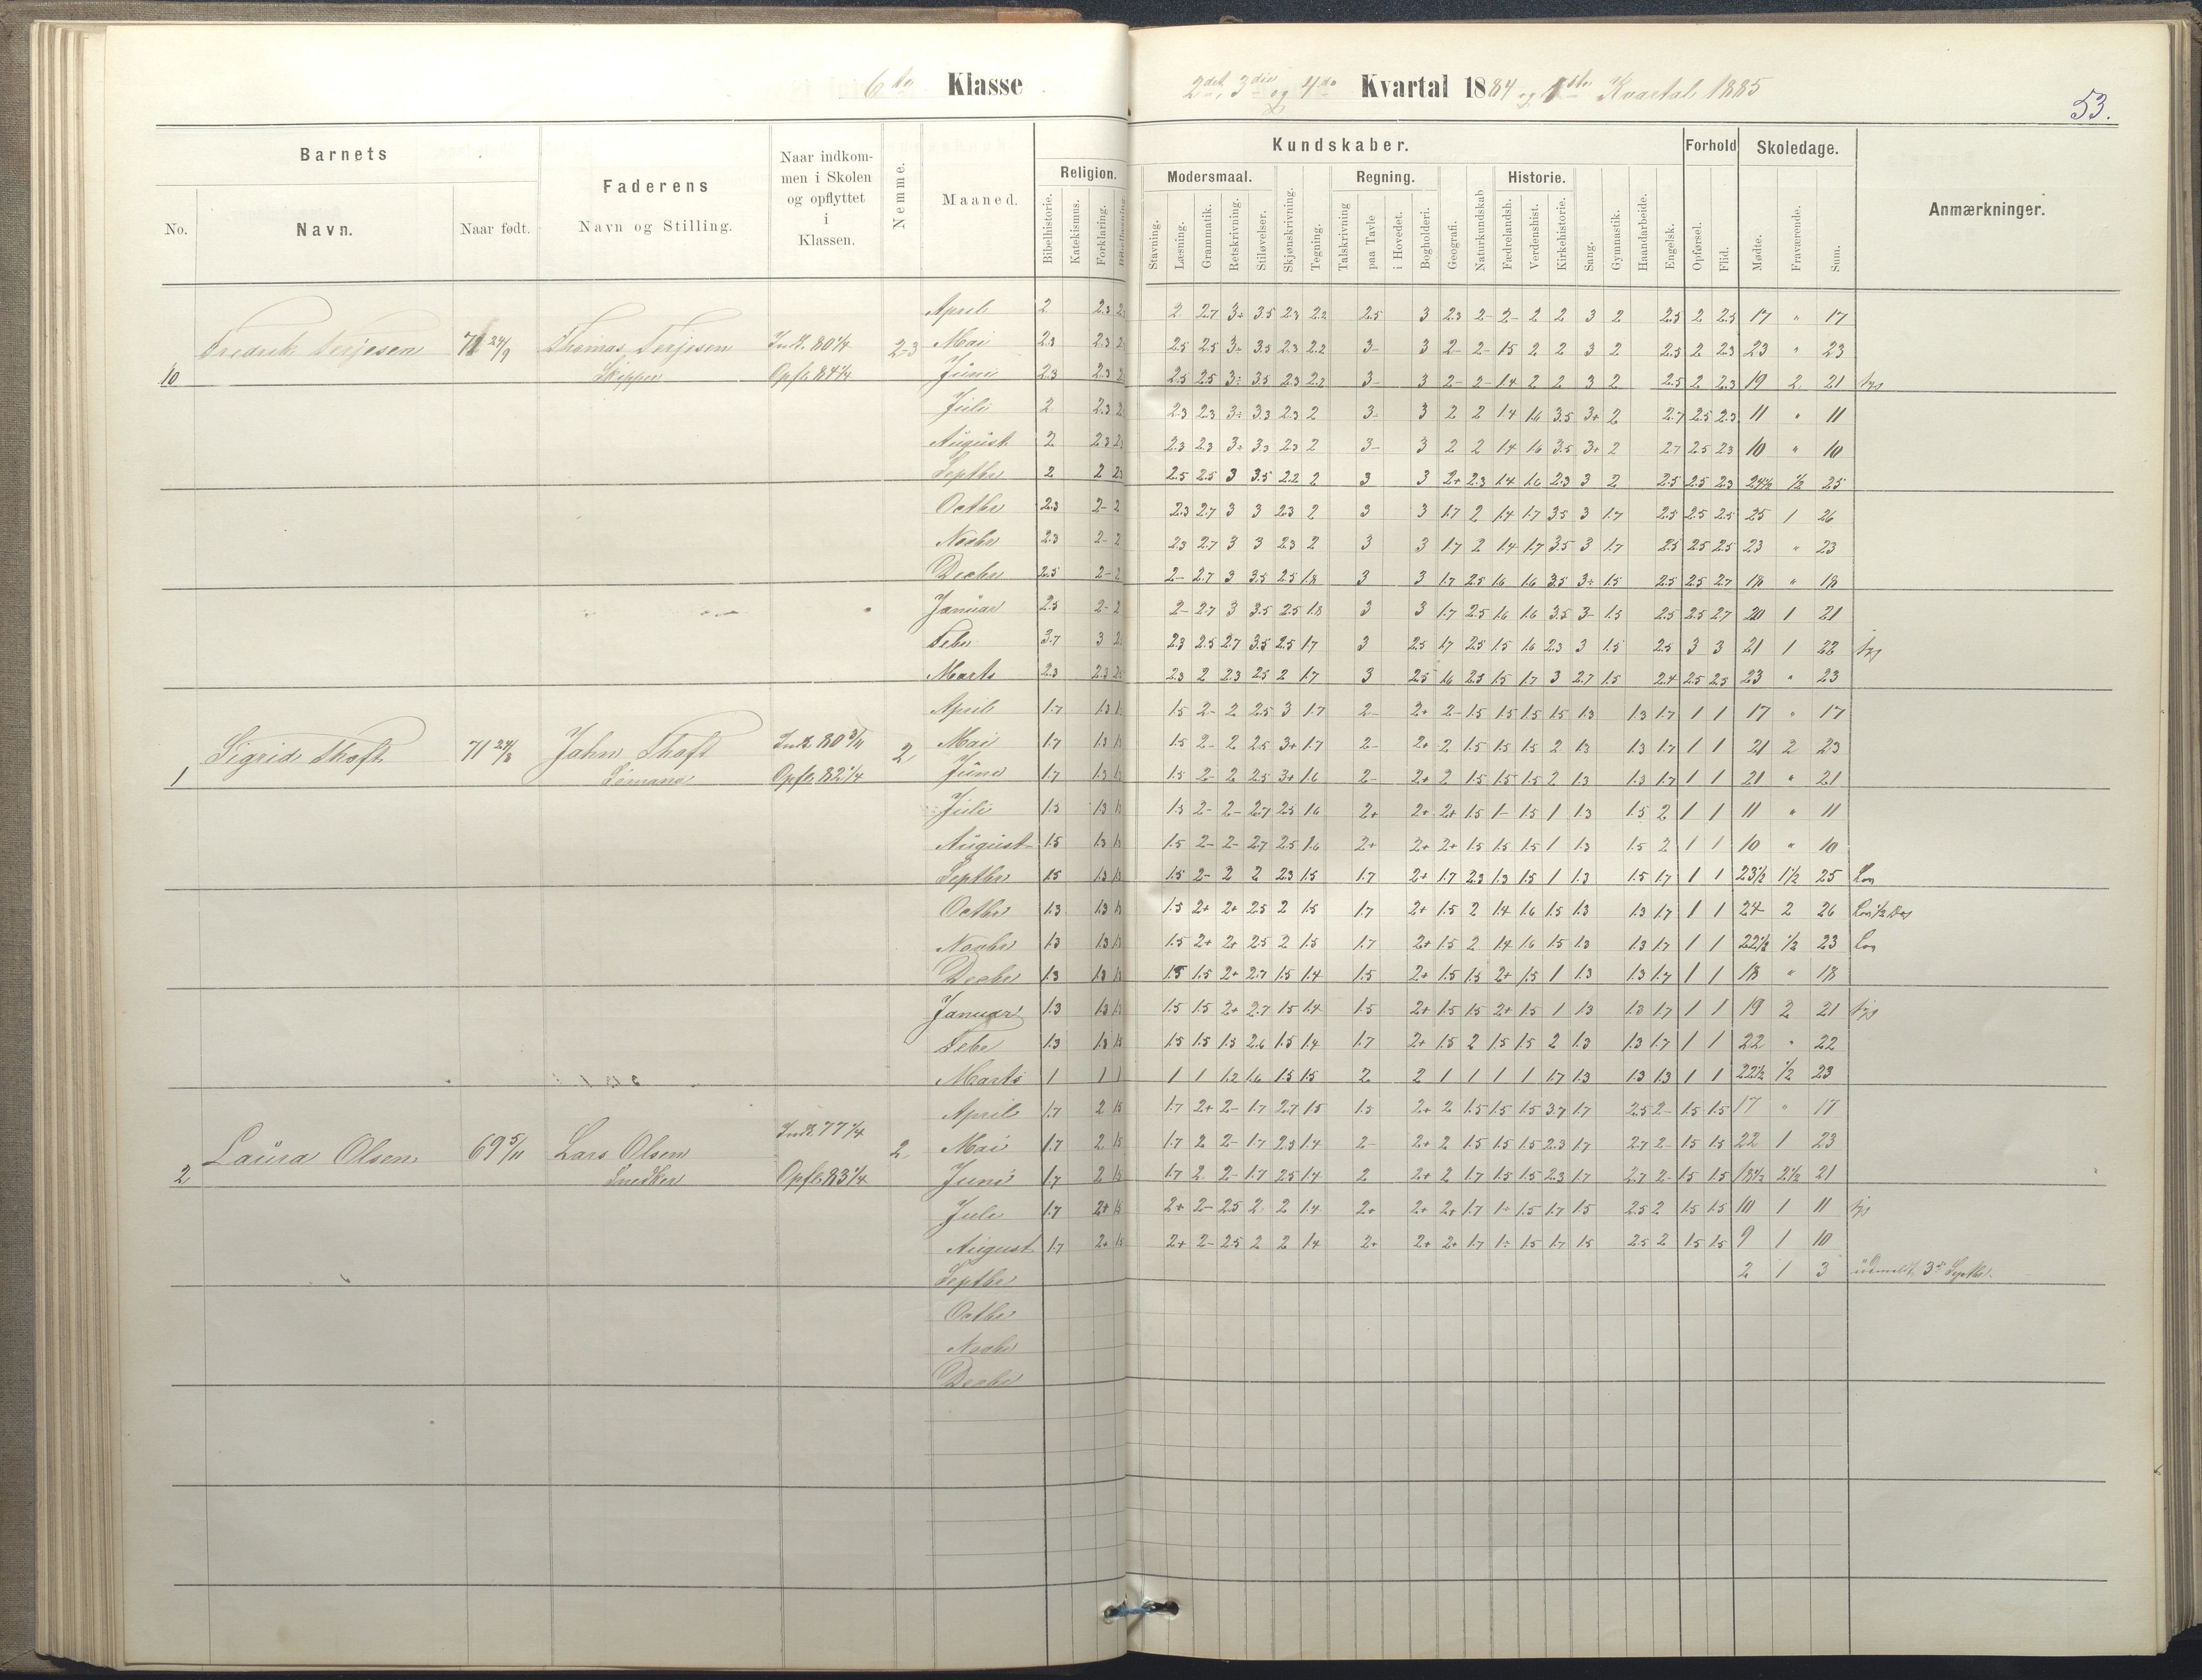 6te Klasse
2det, 3die og 4de Kvartal 1884 og 1ste Kvartal 1885
53.
Barnets
No.
Navn.
Naar født.
Faderens
Navn og Stilling.
Naar indkom-
men i Skolen
og opflyttet
i
Klassen.
Nemme.
Maaned.
Kundskaber.
Religion.
Bibelhistorie.
Katekismus.
Forklaring.
Modersmaal.
Stavning.
Læsning.
Grammatik.
Retskrivning.
Stiløvelser.
Skjønskrivning.
Tegning.
Regning.
Talskrivning
paa Tavle
i Hovedet.
Bogholderi.
Geografi.
Naturkundskab
Historie.
Fædrelandsh.
Verdenshist.
Kirkehistorie.
Sang.
Gymnastik.
Haandarbeide.
Engelsk.
Forhold
Opførsel.
Flid.
Skoledage.
Mødte.
Fraværende.
Sum.
Anmærkninger.
10 Fredrik Terjesen 71 24/9 Thomas Terjesen Indk. 80 1/4 2-3
Skipper Opfl. 84 1/4
April 2 2.3 2 2.7 3+ 3.5 2.3 2.2 2.5 3 2.3 2- 2- 2 2 3 2 2.5 2 2.5 17 " 17
Mai 2.3 2.3 2.5 2.5 3+ 3.5 2.3 2.2 3- 3 2- 2- 1.5 2 2 3 2 2.5 2 2.3 23 " 23
Juni 2.3 2.3 2.5 2.5 3÷ 3.5 2.3 2.2 3- 3 2- 2- 1.4 2 2 3 2 2.5 2 2.3 19 2 21
Juli 2 2.3 2.3 2.3 3÷ 3.3 2.3 2 3- 3 2 2 1.4 1.6 3.5 3+ 2 2.7 2.5 2.3 11 " 11
August 2 2.3 2.3 2.3 3÷ 3.3 2.3 2 3- 3 2 2 1.4 1.6 3.5 3+ 2 2.7 2.5 2.3 10 " 10
Septbr 2 2 2.5 2.5 3 3.5 2.2 2 3 3 2+ 2.3 1.4 1.6 2.3 3 2 2.5 2.5 2.3 24 1/2 1/2 25
Octbr 2.3 2- 2 2.3 2.7 3 3 2.3 2 3 3 1.7 2 1.4 1.7 3.5 3 1.7 2.5 2.5 2.5 25 1 26
Novbr 2.3 2- 2 2.3 2.7 3 3 2.3 2 3 3 1.7 2 1.4 1.7 3.5 3 1.7 2.5 2.5 2.5 23 " 23
Decbr 2.5 2- 2 2- 2.7 3 3.5 2.5 1.8 3 3 1.7 2.5 1.6 1.6 3.5 3÷ 1.5 2.5 2.5 2.7 18 " 18
Januar 2.5 2- 2 2- 2.7 3 3.5 2.5 1.8 3 3 1.7 2.5 1.6 1.6 3.5 3- 1.5 2.5 2.5 2.7 20 1 21
Febr 3.7 3 2.3 2.5 2.7 3.5 2.5 1.7 3 2.5 1.7 2.5 1.5 1.6 2.3 3 1.5 2.5 3 3 21 1 22
Marts 2.3 2.3 2.3 2 2.3 2.5 2 1.7 3 2.5 1.6 2.3 1.5 1.7 3 2.7 1.5 2.4 2.5 2.5 23 " 23
1 Sigrid Thoft 71 24/8 John Thoft Indk. 80 3/11 2
Opfl. 82 1/4
April 1.7 1.3 1.5 2- 2 2.5 3 1.7 2- 2+ 2- 1.5 1.5 1.5 1.5 1.3 1.3 1.7 1 1 17 " 17
Mai 1.7 1.3 1.5 2- 2 2.5 3+ 1.7 2- 2+ 2 1.5 1.5 1.5 2 1.3 1.3 1.7 1 1 21 2 23
Juni 1.7 1.3 1.5 2- 2 2.5 3+ 1.6 2- 2+ 2 1.5 1.5 1.5 2 1.3 1.3 1.7 1 1 21 " 21
Juli 1.5 1.3 1.5 2- 2- 2.7 2.5 1.6 2+ 2+ 2+ 1.5 1- 1.5 1 1.3 1.5 2 1 1 11 " 11
August 1.5 1.3 1.5 2- 2- 2.7 2.5 1.6 2+ 2+ 2+ 1.5 1.5 1.5 1 1.3 1.5 2 1 1 10 " 10
Septbr 1.5 1.3 1.5 2- 2 2 2.3 1.5 1.7 2+ 1.7 2.3 1.3 1.5 1 1.3 1.5 1.7 1 1 23 1/2 1 1/2 25
Octbr 1.3 1.3 1.5 2+ 2+ 2.5 2 1.5 1.7 2+ 1.5 2 1.4 1.6 1.5 1.3 1.3 1.7 1 1 24 2 26
Novbr 1.3 1.3 1.5 2+ 2+ 2.5 2 1.5 1.7 2+ 1.5 2 1.4 1.6 1.5 1.3 1.3 1.7 1 1 22 1/2 1/2 23
Decbr 1.3 1.3 1.5 1.5 2+ 2.7 1.5 1.4 1.5 2+ 1.5 1.5 2+ 1.5 1 1.3 1.3 1.7 1 1 18 " 18
Januar 1.3 1.3 1.5 1.5 2+ 2.7 1.5 1.4 1.5 2+ 1.5 1.5 2+ 1.5 1 1.3 1.3 1.7 1 1 19 2 21
Febr 1.3 1.3 1.5 1.5 1.5 2.6 1.5 1.4 1.7 2+ 1.5 2 1.5 1.5 2 1.3 1.3 1.7 1 1 22 " 22
Marts 1 1 1 1 1 1.2 1.6 1.5 1.5 2 2 1 1 1 1 1.7 1.3 1.3 1.3 1 1 22 1/2 1/2 23
2 Laura Olsen 69 5/11 Lars Olsen Indk. 77 1/4 2
Snedker Opfl. 83 1/4
April 1.7 2 1.5 1.7 2+ 2- 1.7 2.7 1.5 1.5 2+ 2 1.5 1.5 1.5 3.7 1.7 2.5 2- 1.5 1.5 17 " 17
Mai 1.7 2 1.5 1.7 2 2- 1.7 2.5 1.4 2- 2+ 2 1.5 1.5 1.5 2.3 1.7 2.7 2- 1.5 1.5 22 1 23
Juni 1.7 2 1.5 1.7 2 2- 1.7 2.5 1.4 2 2+ 2 1.7 1.5 1.5 2.3 1.7 2.7 2- 1.5 1.5 18 1/2 2 1/2 21
Juli 1.7 2+ 1.5 2+ 2- 2.5 2 2 1.4 2+ 2+ 2+ 1.7 1÷ 1.5 1.7 1.5 2.5 2 1.5 1.5 10 1 11
August 1.7 2+ 1.5 2+ 2- 2.5 2 2 1.4 2+ 2+ 2+ 1.7 1÷ 1.5 1.7 1.5 2.5 2 1.5 1.5 9 1 10
Septbr 2 1 3 udmeldt 3die Septbr.
Octbr
Novbr
Decbr